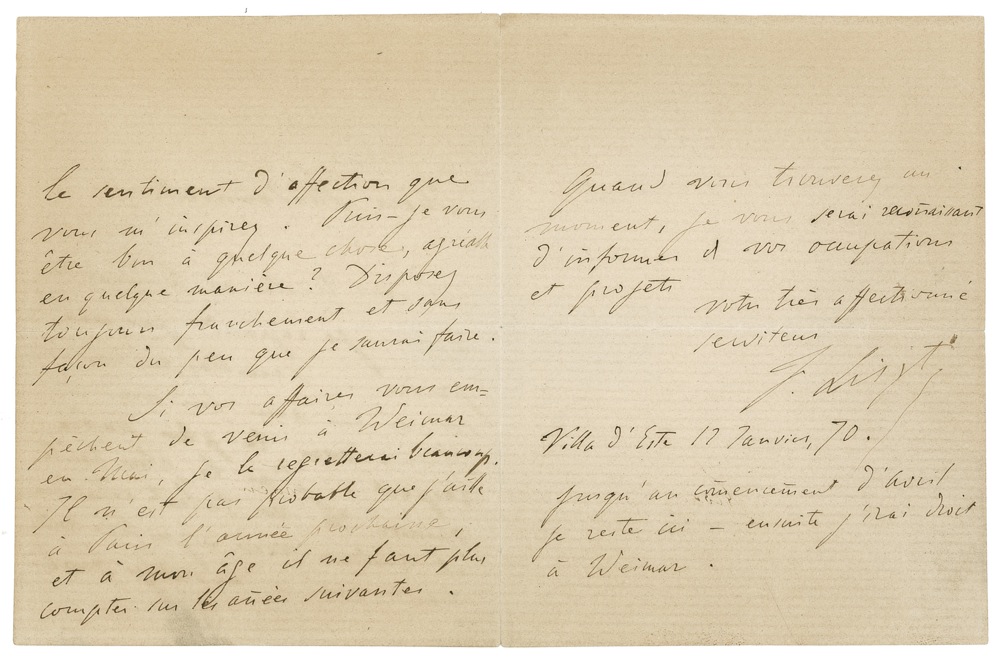 le sentiment d'affection que
vous m'inspirez. Puis-je vous
être bon à quelque chose, agréable
en quelque manière? Disposez
toujours franchement et sans
façon du peu que je saurai faire.
Si vos affaires vous em=
pêchent de venir à Weimar
en Mai, je le regretterai beaucoup.
Il n'est pas probable que j'aille
à Paris l'année prochaine,
et à mon âge il ne faut plus
compter sur les années suivantes.
Quand vous trouverez un
moment, je vous serai reconnaissant
d'informer d vos occupations
et projets
votre très affectionné
serviteur
F. Liszt
Villa d'Este 12 Janvier, 70.
Jusqu'au comencement d'avril
je reste ici – ensuite j'irai droit
à Weimar.